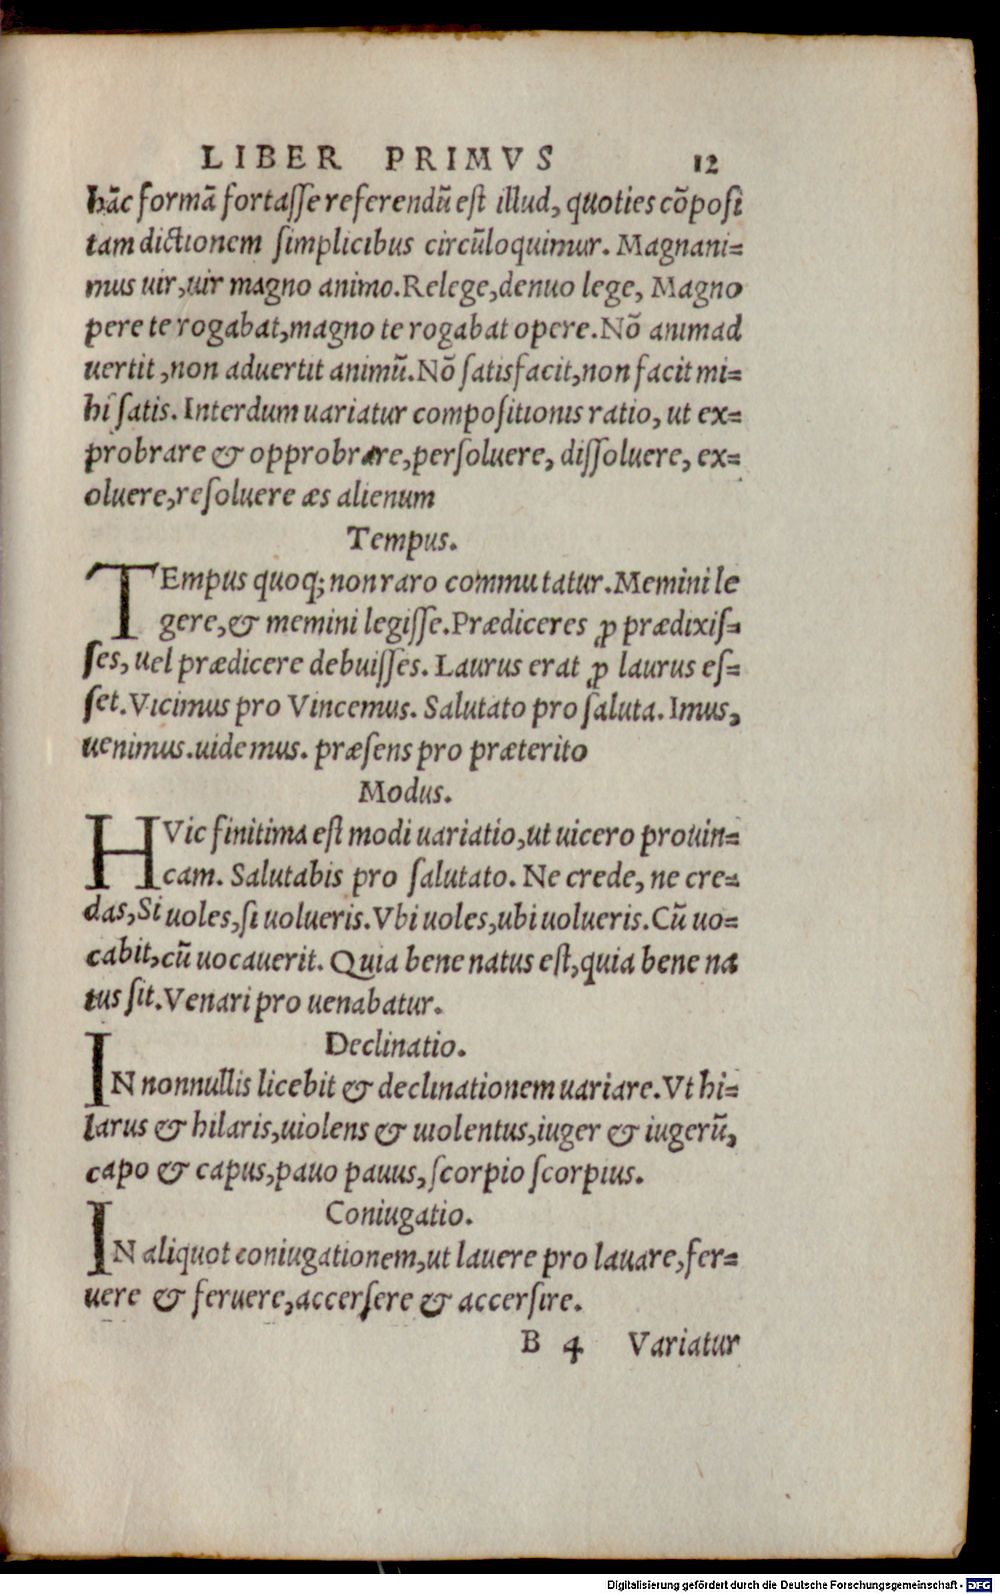 LIBER PRIMVS 12
hãc formã fortaſſe referendũ eſt illud, quoties cõpoſi
tam dictionem ſimplicibus circũloquimur. Magnani=
mus uir, uir magno animo. Relege, denuo lege, Magno
pere te rogabat, magno te rogabat opere. Nõ animad
uertit, non aduertit animũ. Nõ ſatisfacit, non facit mi=
hi ſatis. Interdum uariatur compoſitionis ratio, ut ex=
probrare & opprobrare, perſoluere, diſſoluere, ex=
oluere, reſoluere æs alienum
Tempus.
TEmpus quoq; non raro commutatur. Memini le
gere, & memini legiſſe. Prædiceres ꝓ prædixiſ=
ſes, uel prædicere debuiſſes. Laurus erat ꝓ laurus eſ=
ſet. Vicimus pro Vincemus. Salutato pro ſaluta. Imus,
uenimus. uidemus. præſens pro præterito
Modus.
HVic finitima eſt modi uariatio, ut uicero pro uin=
cam. Salutabis pro ſalutato. Ne crede, ne cre=
das, Si uoles, ſi uolueris. Vbi uoles, ubi uolueris. Cũ uo=
cabit, cũ uocauerit. Quia bene natus eſt, quia bene na
tus ſit. Venari pro uenabatur.
Declinatio.
IN nonnullis licebit & declinationem uariare. Vt hi=
larus & hilaris, uiolens & uiolentus, iuger & iugerũ,
capo & capus, pauo pauus, ſcorpio ſcorpius.
Coniugatio.
IN aliquot coniugationem, ut lauere pro lauare, fer=
uere & feruere, accerſere & accerſire.
B 4 Variatur
Digitalisierung gefördert durch die Deutsche Forschungsgemeinschaft - DFG